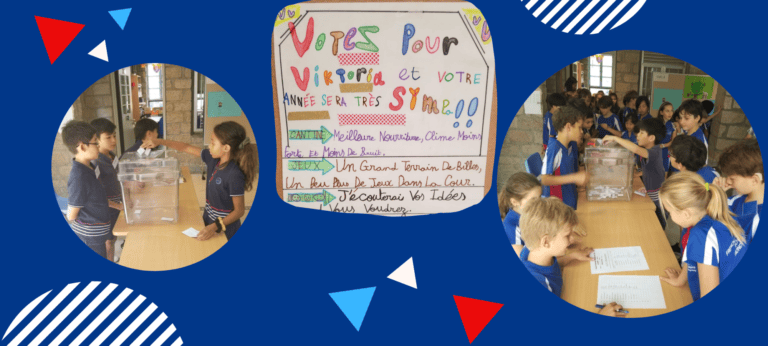 Votes Pour
Viktoria et VOTRE
ANNÉE SERA TRÈS SYMPA!!
CANTINE Meilleure Nourriture, Clime Moins
Fort, Et Moins De Bruit.
JEUX Un Grand Terrain De Billes,
Un Peu Plus De Jeux Dans La Cour.
J'écouterais Vos Idées
Vous Voudrez.